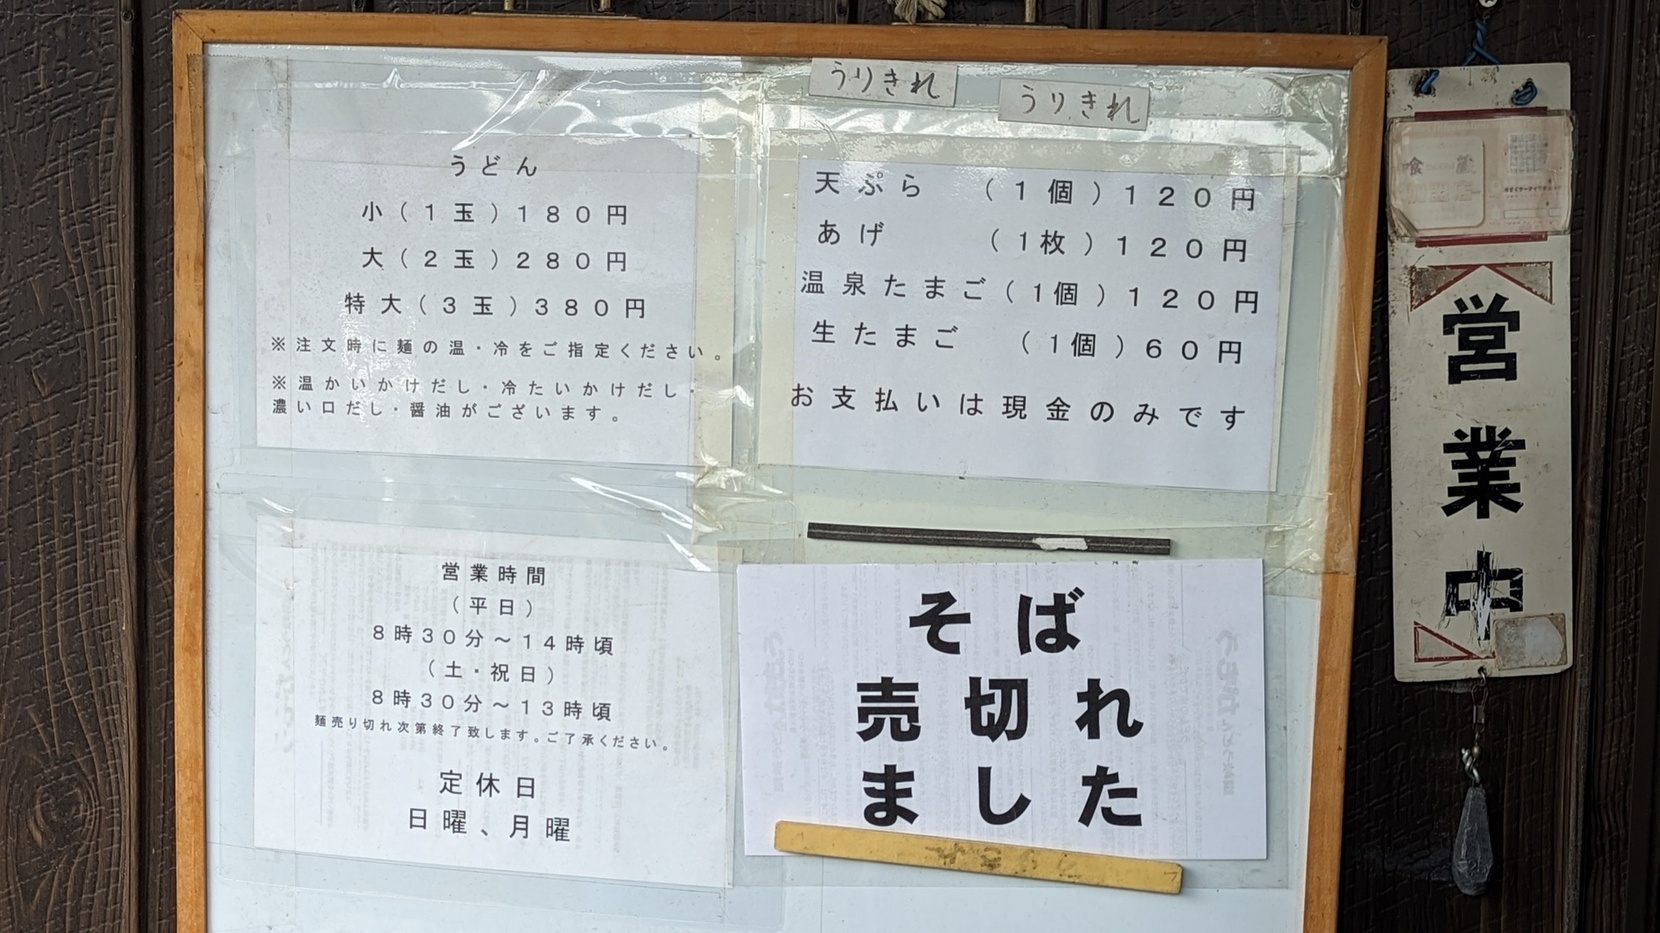 うりきれ
うりきれ
うどん
小(1玉)180円
大(2玉)280円
特大(3玉)380円
※注文時に麺の温・冷をご指定ください。
※温かいかけだし・冷たいかけだし・
濃い口だし・醤油がございます。
天ぷら (1個)120円
あげ (1枚)120円
温泉たまご(1個)120円
生たまご (1個)60円
お支払いは現金のみです
営業時間
(平日)
8時30分～14時頃
(土・祝日)
8時30分～13時頃
麺売り切れ次第終了致します。ご了承ください。
定休日
日曜、月曜
そば
売切れ
ました
営業中